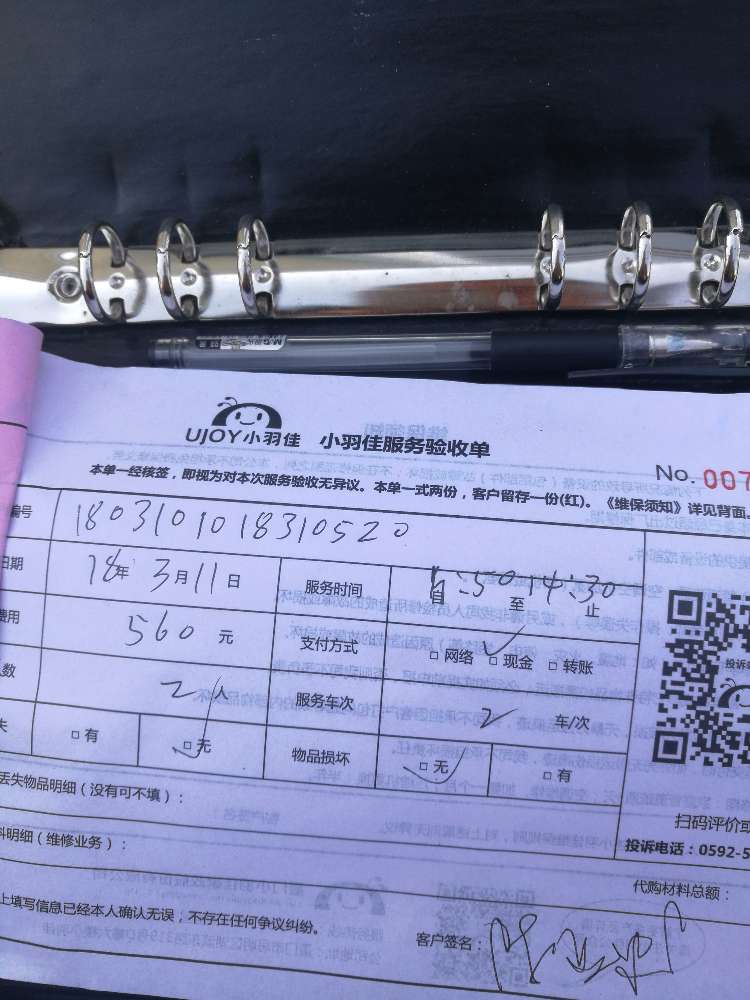 M&G
UJOY小羽佳 小羽佳服务验收单
No. 007
本单一经核签，即视为对本次服务验收无异议。本单一式两份，客户留存一份(红)。《维保须知》详见背面。
编号 1803101018310520
日期 18年 3月11日 服务时间 自 至14:30止
费用 560元 支付方式 □网络 □现金 □转账
人数 2人 服务车次 2 车/次
失 □有 □无 物品损坏 □无 □有
丢失物品明细（没有可不填）：
料明细（维修业务）：
上填写信息已经本人确认无误，不存在任何争议纠纷。
投诉
扫码评价或
投诉电话：0592-5
代购材料总额：
客户签名：